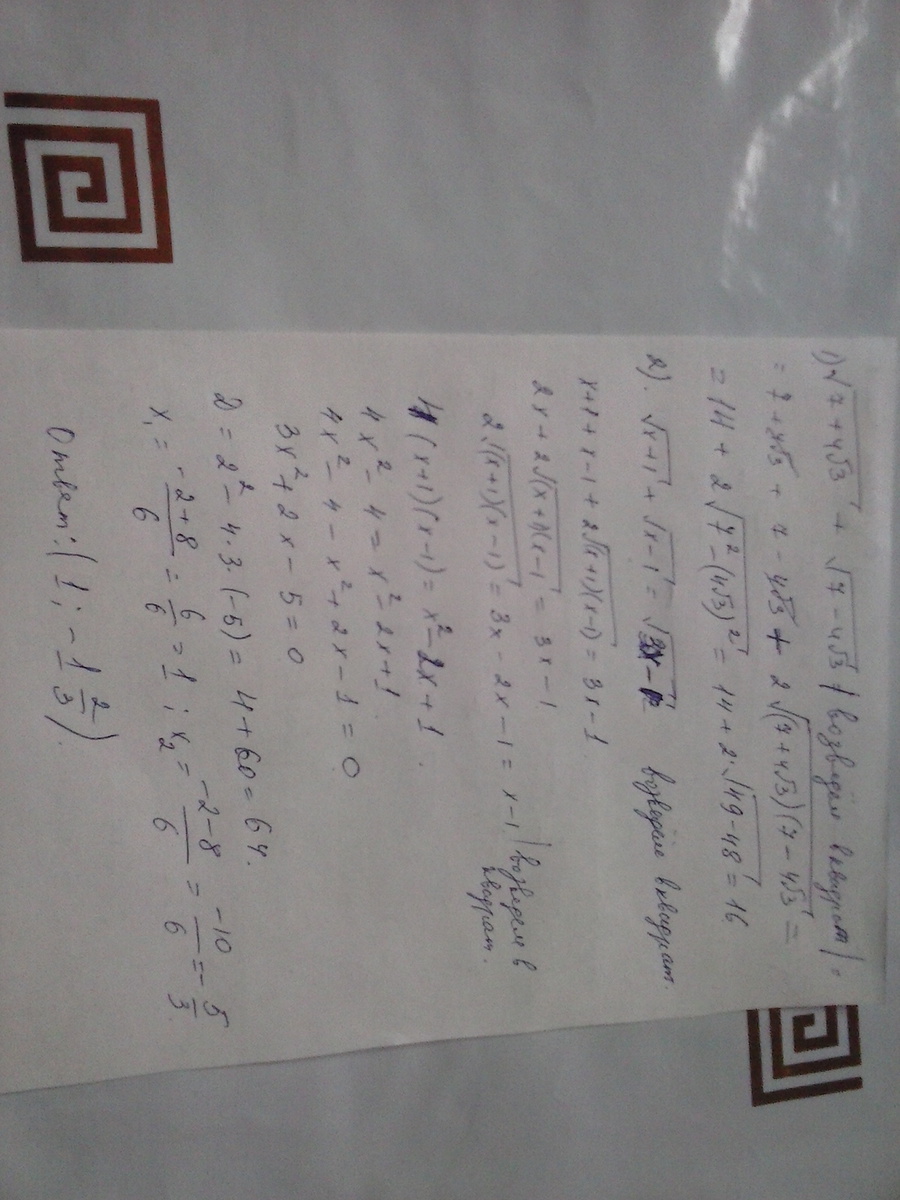 1) √7+4√3 + √7-4√3 | возведём в квадрат | =
= 7+4√3 + 7-4√3 + 2√(7+4√3)(7-4√3) =
= 14 + 2√7²-(4√3)² = 14 + 2·√49-48 = 16
2). √x+1 + √x-1 = √3x-1 возведём в квадрат.
x+1+x-1+2√(x+1)(x-1) = 3x-1
2x+2√(x+1)(x-1 = 3x-1
2√(x+1)(x-1) = 3x-2x-1 = x-1. | возведём в квадрат.
4(x+1)(x-1) = x²-2x+1.
4x²-4 = x²-2x+1.
4x²-4-x²+2x-1=0
3x²+2x-5=0
D = 2²-4·3·(-5) = 4+60 = 64.
x₁ = -2+8/6 = 6/6 = 1; x₂ = -2-8/6 = -10/6 = -5/3
Ответ: (1; -1 2/3).